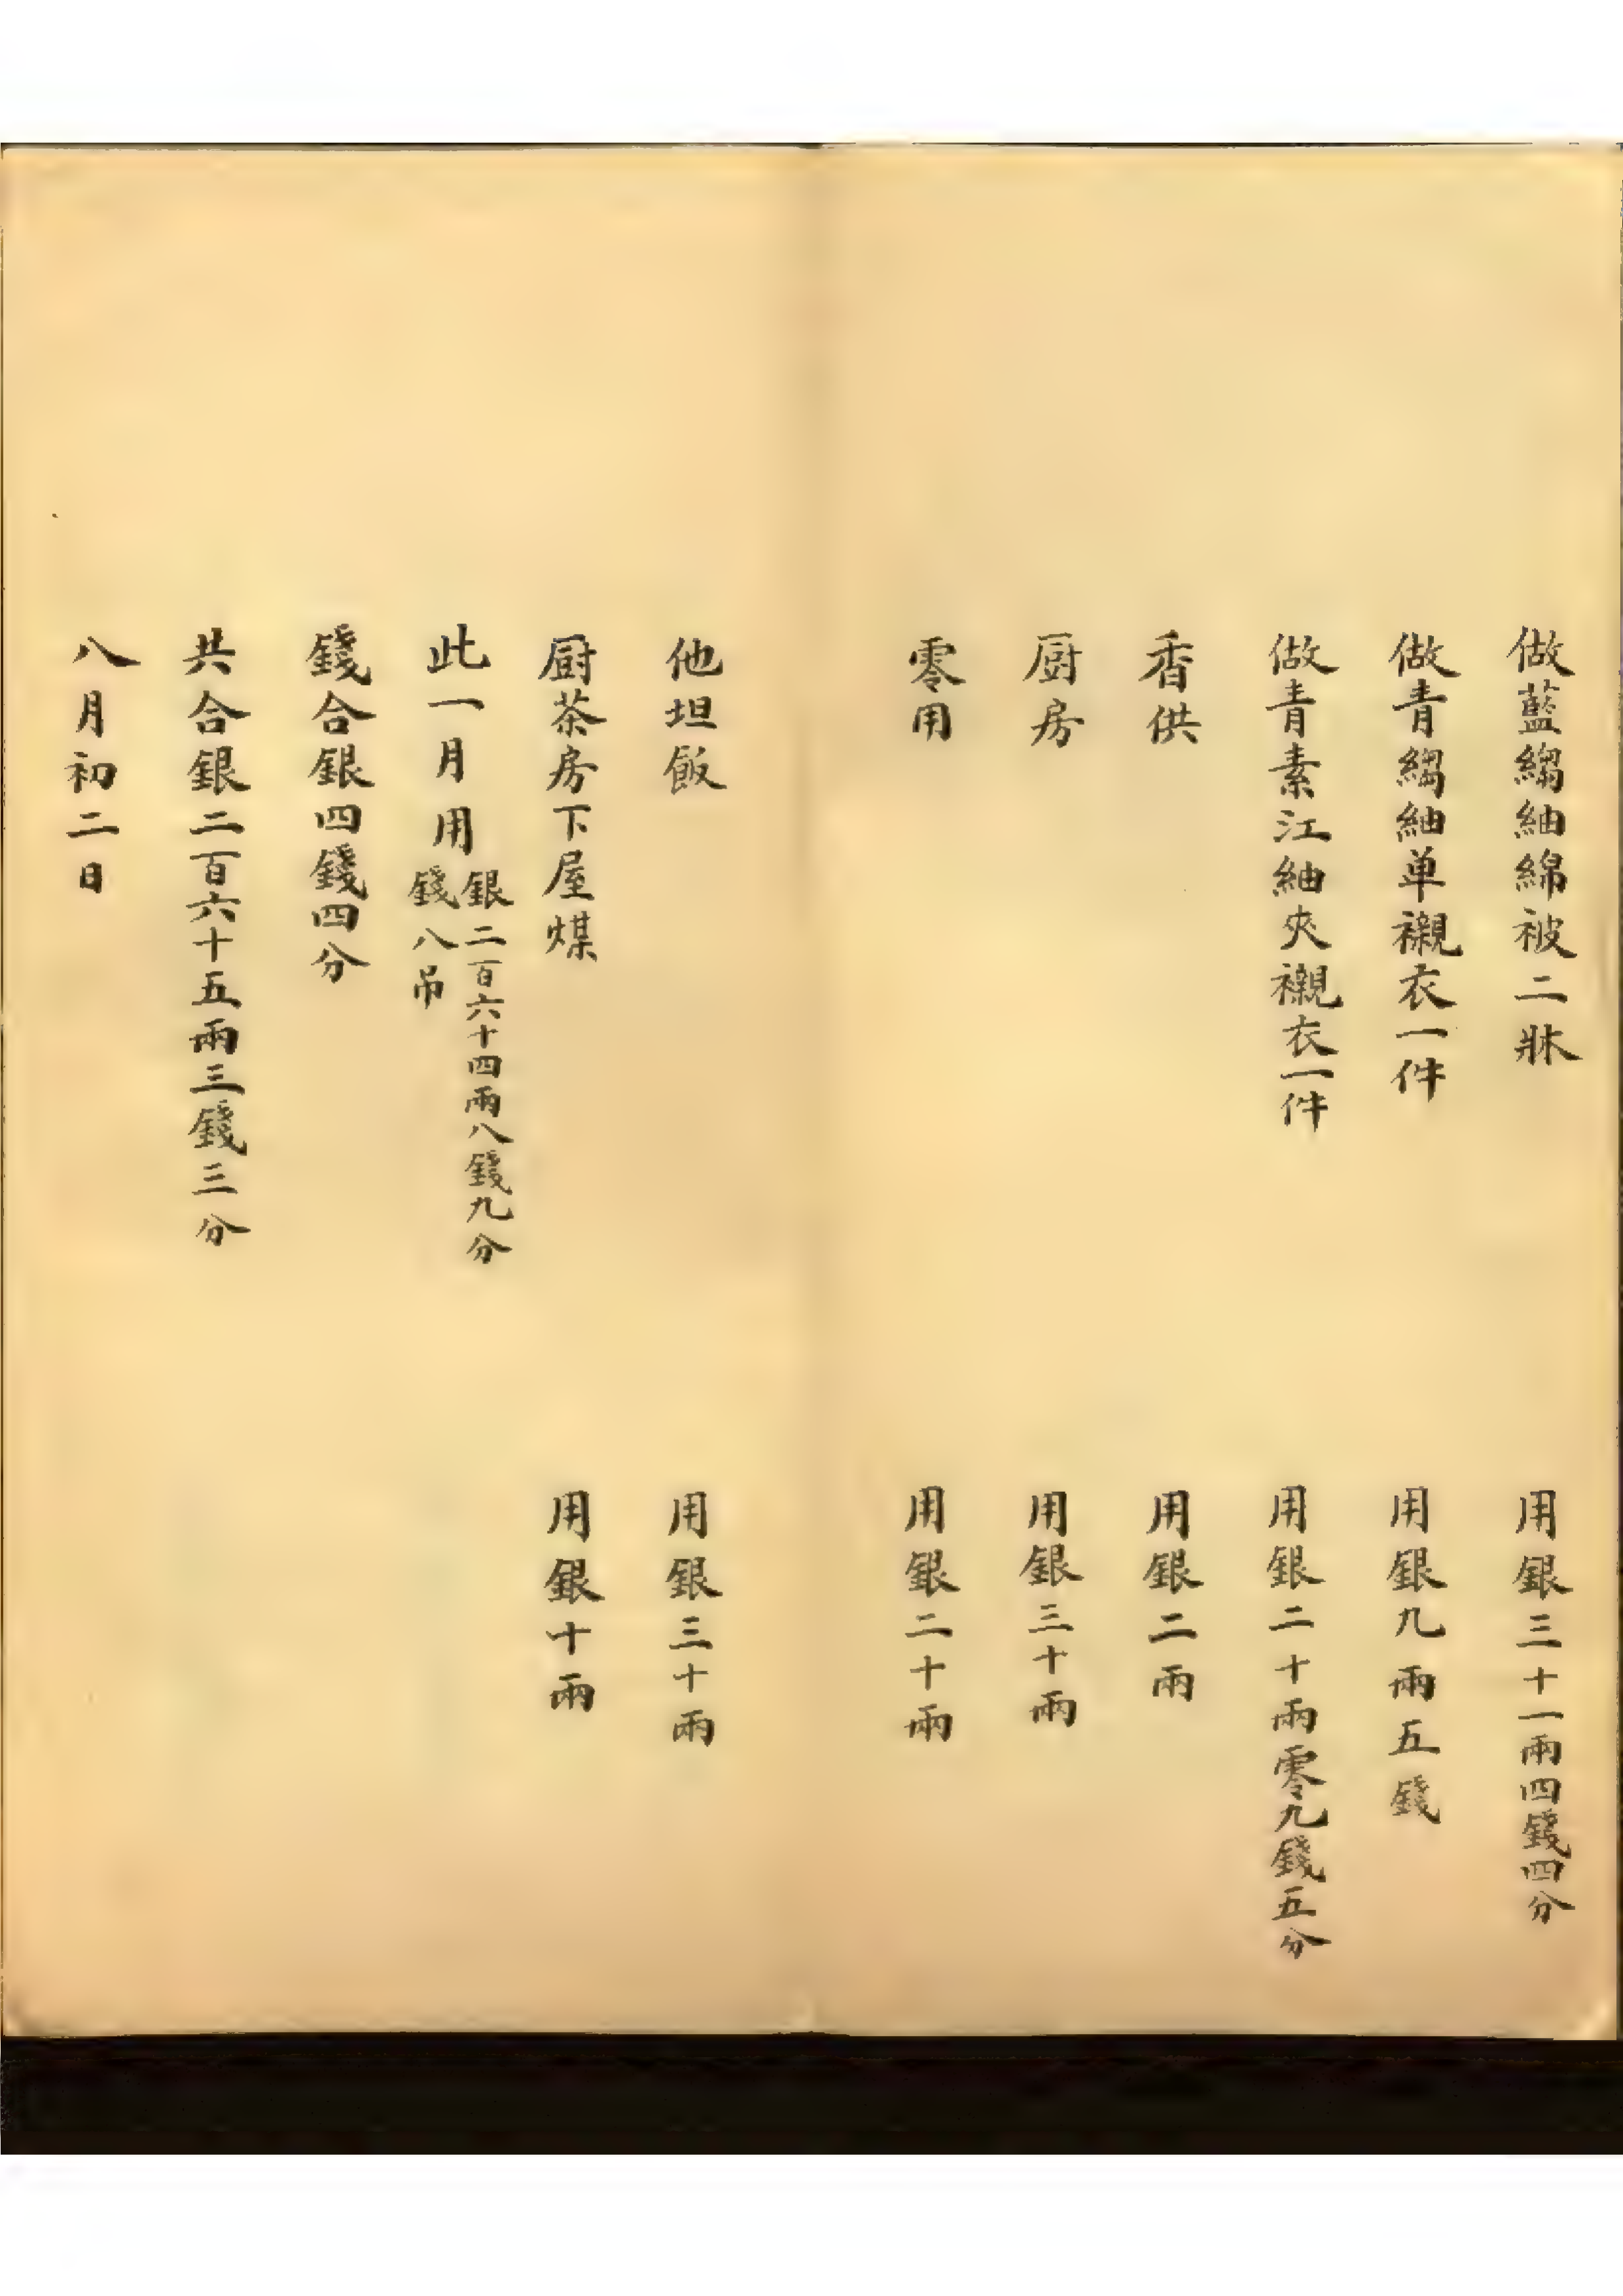 做藍縐紬綿被二牀 用銀三十一兩四錢四分
做青縐紬单襯衣一件 用銀九兩五錢
做青素江紬夾襯衣一件 用銀二十兩零九錢五分
香供 用銀二兩
厨房 用銀三十兩
零用 用銀二十兩
他坦飯 用銀三十兩
厨茶房下屋煤 用銀十兩
此一月用銀二百六十四兩八錢九分
錢八吊
錢合銀四錢四分
共合銀二百六十五兩三錢三分
八月初二日